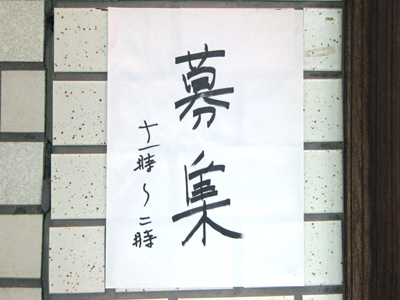 募集
十一時〜二時